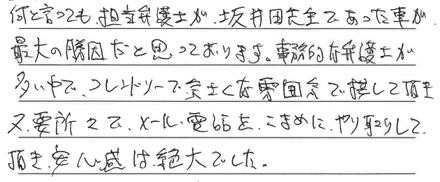 何と言っても、担当弁護士が、坂井田先生であった事が、
最大の勝因だと思っております。事務的な弁護士が
多い中で、フレンドリーで気さくな雰囲気で接して頂き
又、要所々で、メール・電話を、こまめに、やり取りして
頂き、安心感は絶大でした。